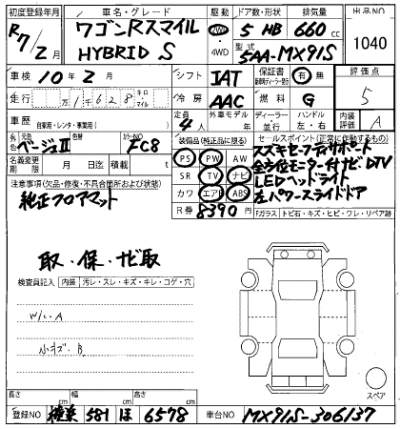 初度登録年月 車名・グレード 駆動 ドア数・形状 排気量 出品NO
R7/2月 ワゴンRスマイル HYBRID S 2WD 4WD 5 HB 660cc 1040
型式 5AA-MX91S
車検 10年2月 シフト IAT 保証書 有・無 評価点 5
走行 万1千628 キロ マイル 冷房 AAC 燃料 G
車歴 自家用・レンタ・事業用( ) 定員 4人 外車モデル 年 ディーラー 並行 ハンドル 左・右 内装評価 A
元色 ベージュⅡ カラーNO FC8 装備品(純正品に限る) セールスポイント(正常に作動するもの)
名義変更期限 月 日迄 積載 t PS PW AW スズキセーフティサポート
注意事項(欠品・修復・不具合箇所および状態) SR TV ナビ 全方位モニター付ナビDTV
純正フロアマット カワ エアB ABS LEDヘッドライト
R券 8390円 左パワースライドドア
Fガラス トビ石・キズ・ヒビ・ワレ・リペア跡
取・保・ナビ取
検査員記入 内装 汚レ・スレ・キズ・キレ・コゲ・穴
W/C・A
小キズ・B
スペア
長さ cm 幅 cm 高さ cm
登録NO 581 ほ 6578 車台NO MX91S-306137